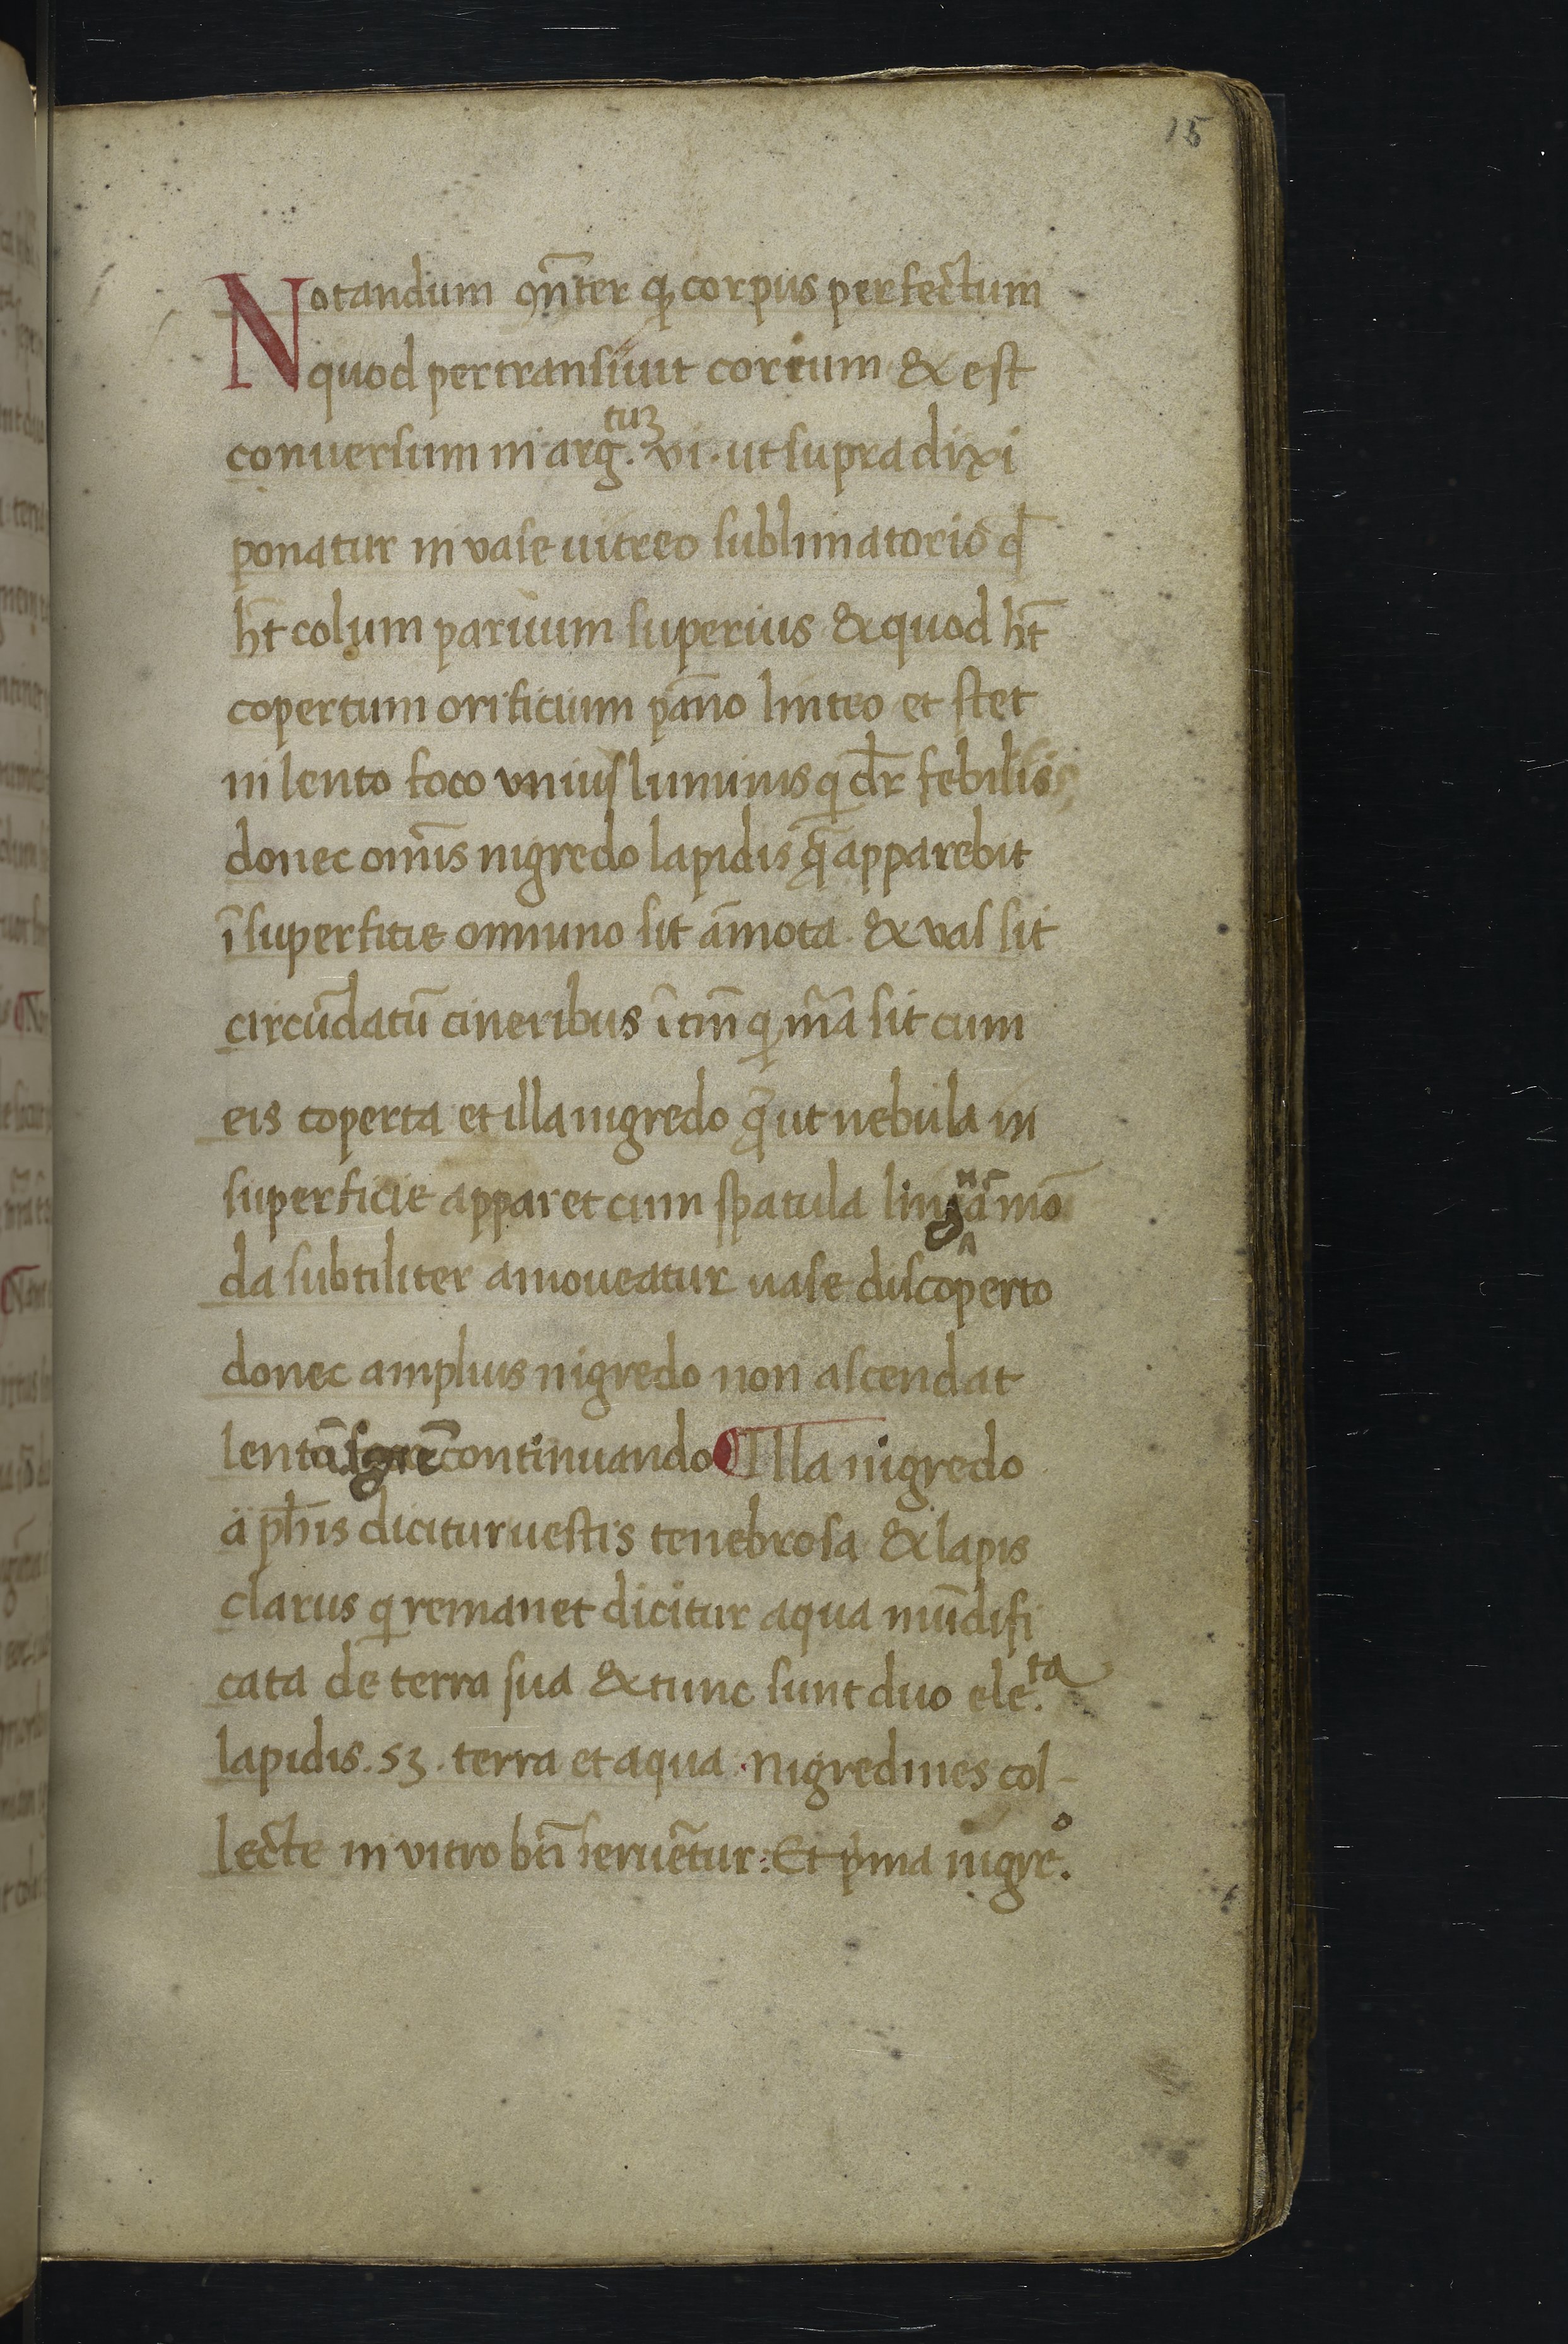 15
Notandum ꝯñter ꝙ corpus perfectum
quod pertransiuit corium & est
conuersum in arg.tuꝫ vi. ut supra dixi
ponatur in vase uitreo sublimatorio qd̄
ht̄ colum paruum superius & quod ht̄
copertum orificium pāno linteo et stet
in lento foco vnius luminis q dr̄ febilis
donec omīs nigredo lapidis q̄ apparebit
ī superfitie omnino sit āmota & vas sit
circūdatū cineribus ī tm̄ ꝙ mā̄ sit cum
eis coperta et illa nigredo q̄ ut nebula in
superficie apparet cum spatula mō
da subtiliter amoueatur uase discoperto
donec amplius nigredo non ascendat
continuando Illa nigredo
a ph̄is dicitur uestis tenebrosa & lapis
clarus q remanet dicitur aqua mūdifi
cata de terra sua & tunc sunt duo ele.ta
lapidis. sꝫ. terra et aqua. nigredines col-
lecte in vitro bn̄ seruētur: Et pͥma nigr̄.o